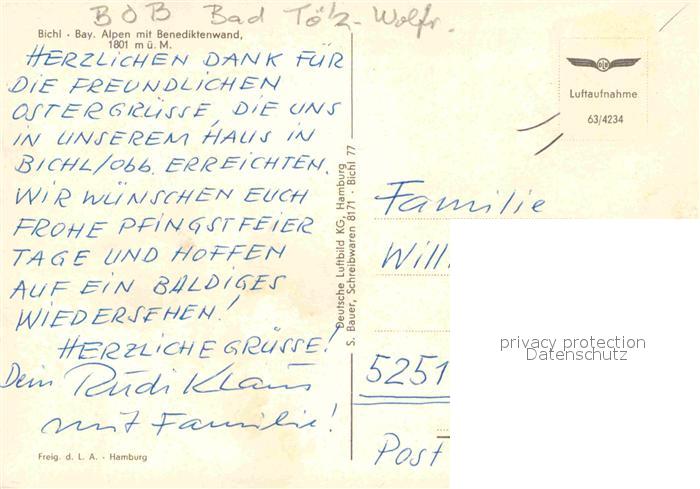 BOB Bad Tölz-Wolfr.
Bichl · Bay. Alpen mit Benediktenwand,
1801 m ü. M.
HERZLICHEN DANK FÜR
DIE FREUNDLICHEN
OSTERGRÜSSE, DIE UNS
IN UNSEREM HAUS IN
BICHL/Obb. ERREICHTEN.
WIR WÜNSCHEN EUCH
FROHE PFINGSTFEIER
TAGE UND HOFFEN
AUF EIN BALDIGES
WIEDERSEHEN!
HERZLICHE GRÜSSE!
Dein Rudi Klaus
mit Familie!
Freig. d. L. A. - Hamburg
Deutsche Luftbild KG, Hamburg
S. Bauer, Schreibwaren 8171 · Bichl 77
Luftaufnahme
63/4234
Familie
Willi
5251
Post
privacy protection
Datenschutz